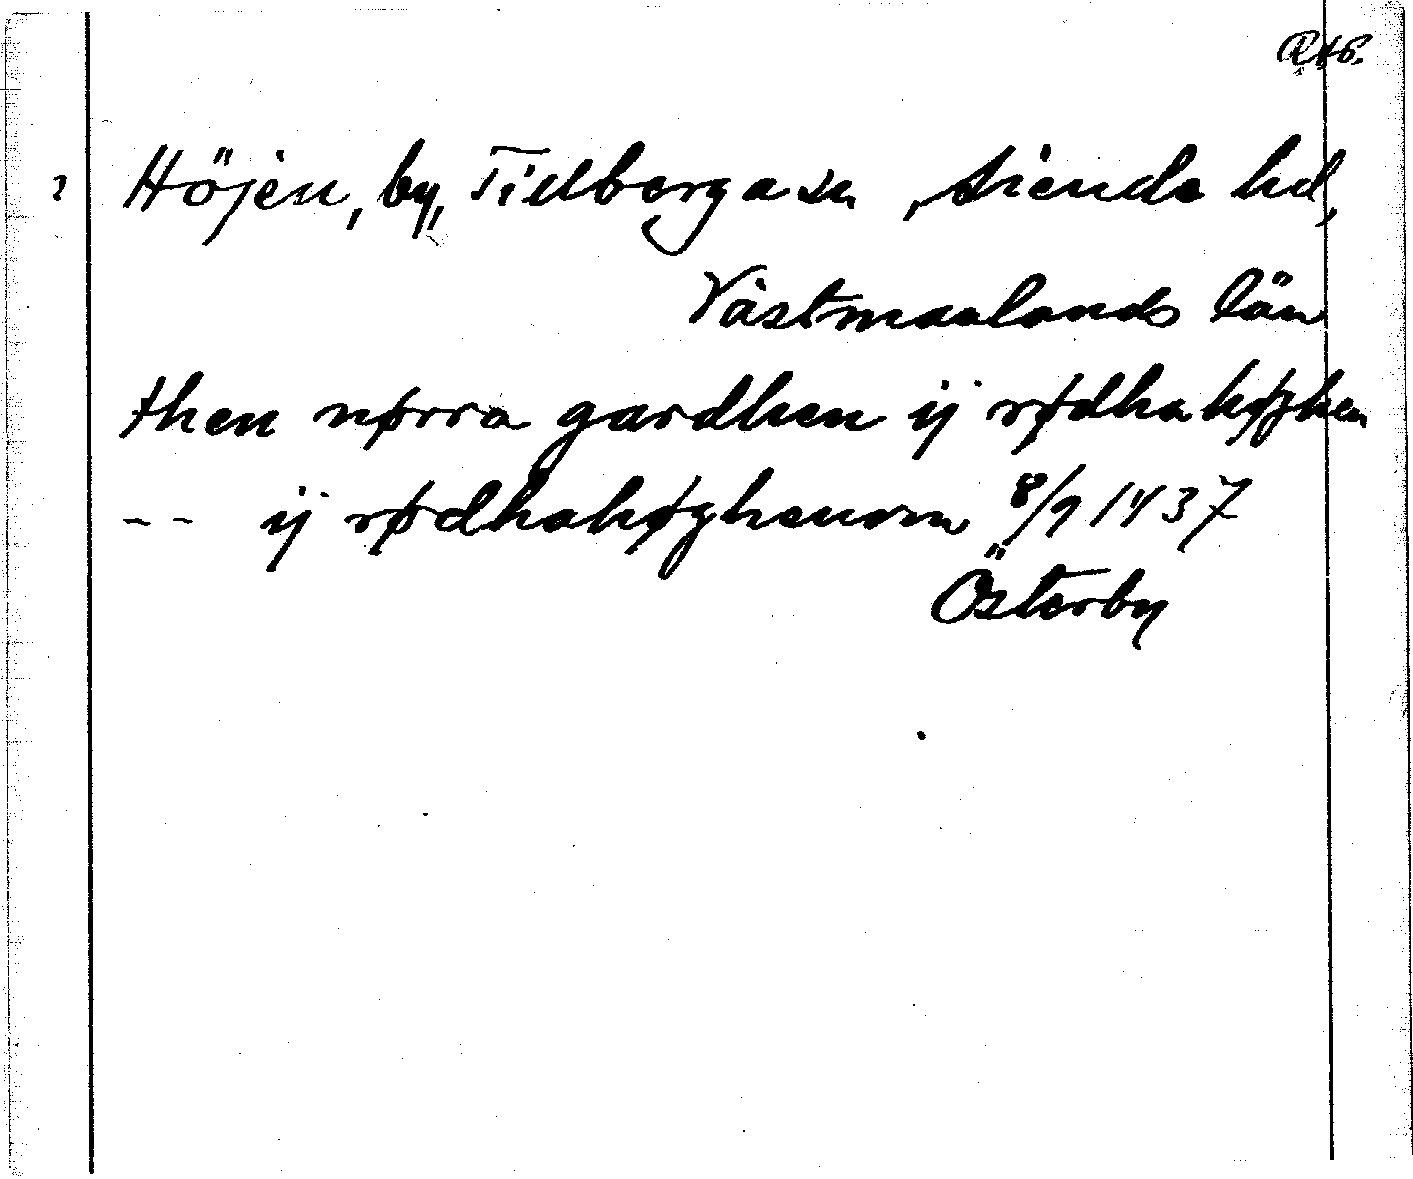 ? Höjen, by, Tillberga sn, siende hd,
Västmanlands län
then nørra gardhen ij rødhahøghen
-- ij rødhahøghenom 8/9 1437
Österby